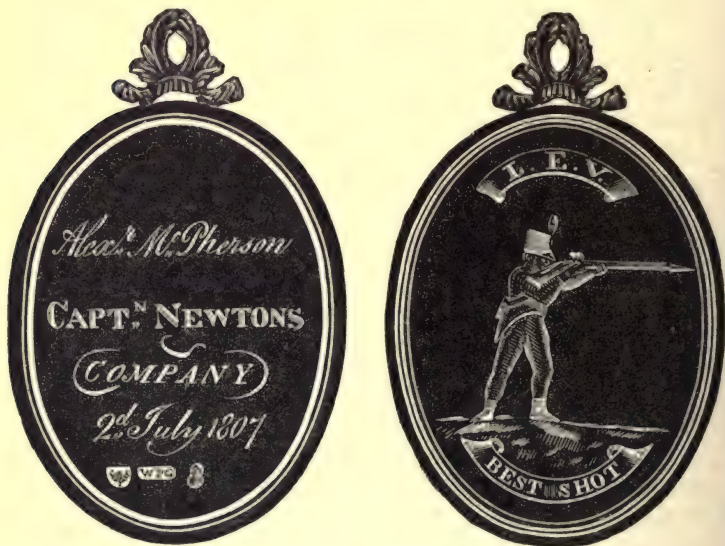 Alexr. McPherson
CAPTN. NEWTONS
COMPANY
2d. July 1807
L. E. V.
BEST SHOT